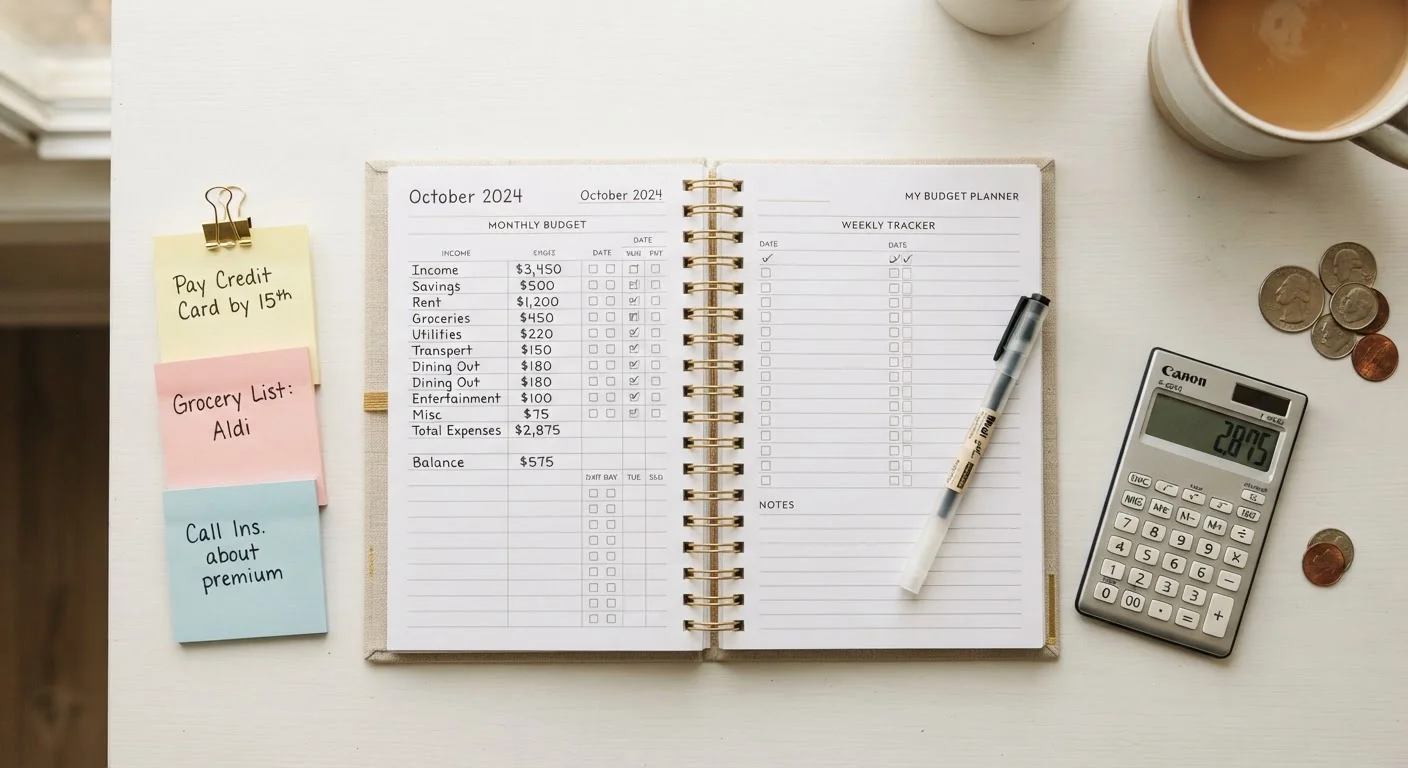 Pay Credit
Card by 15th
Grocery List:
Aldi
Call Ins.
about
premium
October 2024 October 2024
MONTHLY BUDGET
DATE
INCOME DATE
Income $3,450
Savings $500
Rent $1,200
Groceries $450
Utilities $220
Transport $150
Dining Out $180
Dining Out $180
Entertainment $100
Misc $75
Total Expenses $2,875
Balance $575
TUE
MY BUDGET PLANNER
WEEKLY TRACKER
DATE DATE
NOTES
Canon
2,875
7 8 9 9 ÷
4 5 6 6 ×
1 2 3 3 −
0 00 . = +